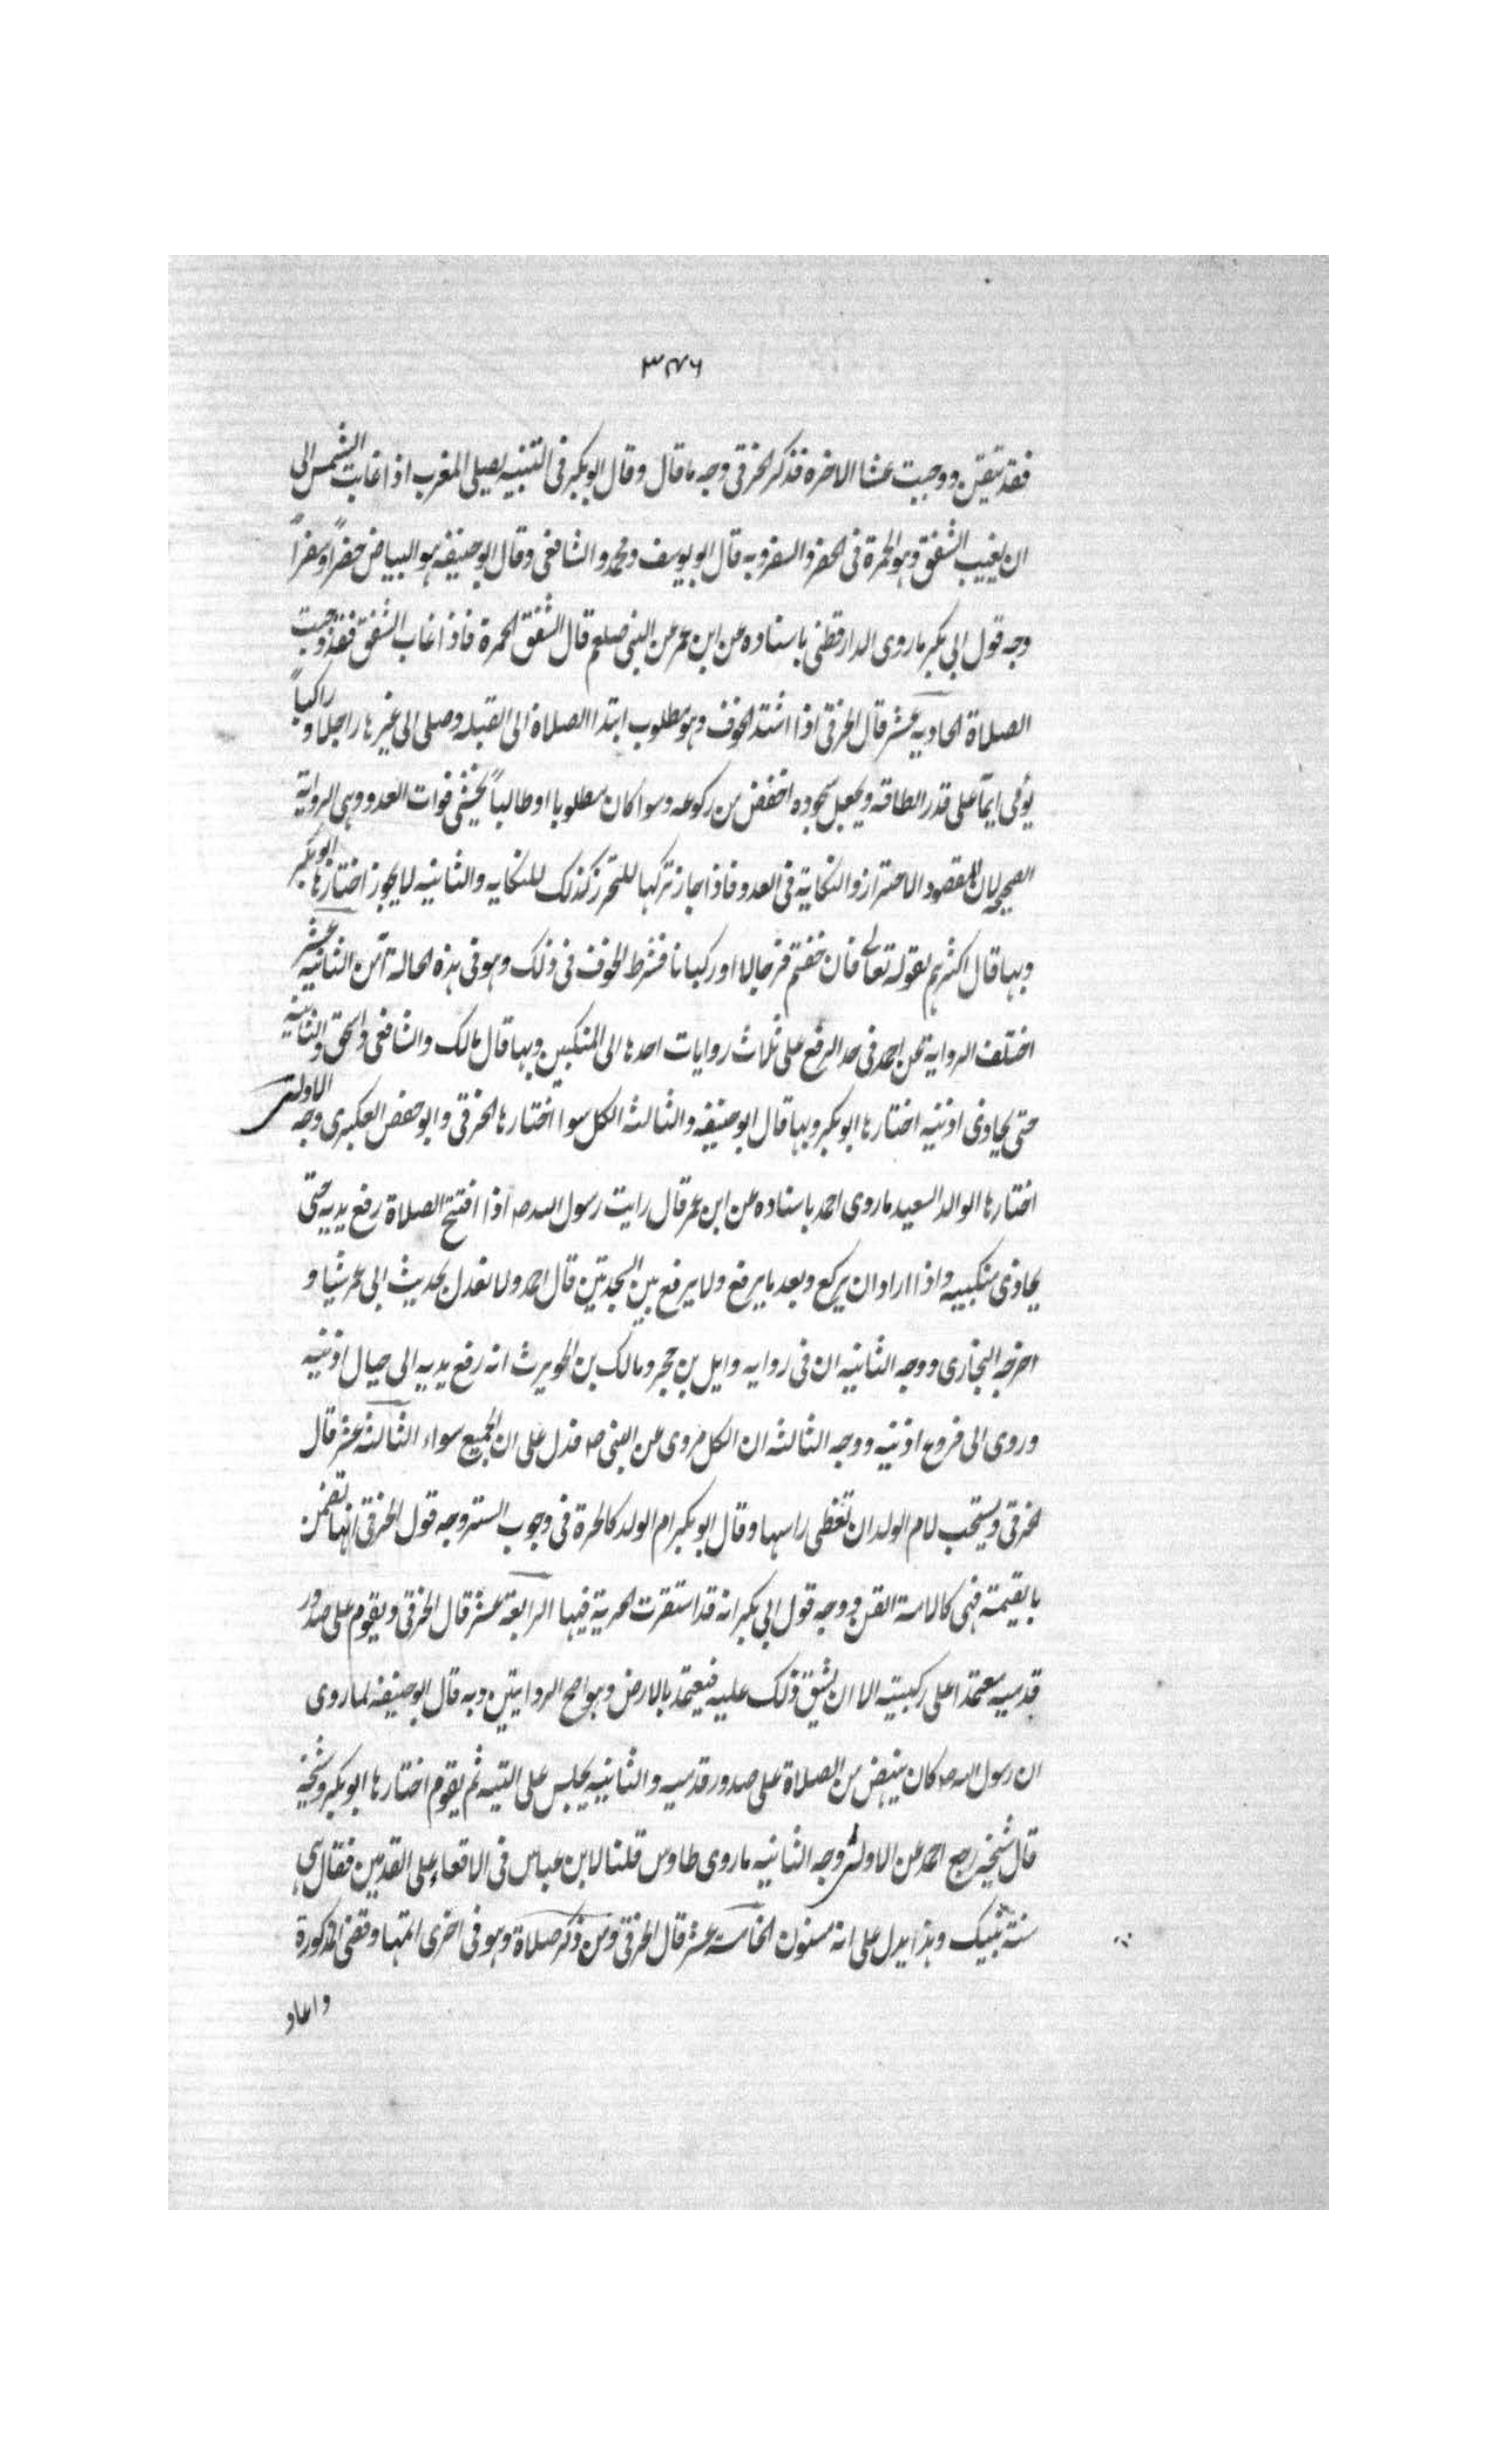 ٣٤٦
فقد تيقن ووجبت عشا الاخره فذكر الخرقى وجه ما قال وقال ابو بكر فى التنبيه يصلى المغرب اذا غابت الشمس الى
ان يغيب الشفق وهو الحمرة فى الحضر والسفر وبه قال ابو يوسف ومحمد والشافعى وقال ابو حنيفه هو البياض حضراً وسفراً
وجه قول ابى بكر ما روى الدارقطنى باسناده عن ابن عمر عن النبى صلعم قال الشفق الحمرة فاذا غاب الشفق فقد وجبت
الصلاة الحاديه عشر قال الخرقى اذا اشتد الخوف وهو مطلوب ابتدا الصلاة الى القبله وصلى الى غيرها راجلا و راكباً
يومى ايمآ على قدر الطاقه ويجعل سجوده اخفض من ركوعه وسوا كان مطلوبا او طالباً يخشى فوات العدو وهى الرواية
الصحيحه لان المقصود الاحتراز والنكاية فى العدو فاذا جاز تركها للتحرز كذلك للنكايه والثانيه لا يجوز اختارها ابو بكر
وبها قال اكثرهم لقوله تعالى فان خفتم فرجالا او ركبانا فشرط الخوف فى ذلك وهو فى هذه الحالة آمن الثانيه عشر
اختلف الرواية عن احمد فى حد الرفع على ثلاث روايات احدها الى المنكبين وبها قال مالك والشافعى واسحق والثانيه
حتى يحاذى اذنيه اختارها ابو بكر وبها قال ابو حنيفه والثالثه الكل سوا اختارها الخرقى وابو حفص العكبرى وجه الاولى
اختارها الوالد السعيد ما روى احمد باسناده عن ابن عمر قال رايت رسول الله ص اذا افتتح الصلاة رفع يديه حتى
يحاذى منكبيه واذا اراد ان يركع وبعد ما يرفع ولا يرفع بين السجدتين قال احمد ولا نعدل بحديث ابى عمر شيئا و
اخرجه البخارى ووجه الثانيه ان فى روايه وايل بن حجر ومالك بن الحويرث انه رفع يديه الى حيال اذنيه
وروى الى فروع اذنيه ووجه الثالثه ان الكل مروى عن النبى ص فدل على ان الجميع سواء الثالثه عشر قال
الخرقى ويستحب لام الولد ان تغطى راسها وقال ابو بكر ام الولد كالحرة فى وجوب الستر وجه قول الخرقى انها تضمن
بالقيمة فهى كالامة القن ووجه قول ابى بكر انه قد استقرت الحرية فيها الرابعة عشر قال الخرقى ويقوم على صدور
قدميه معتمدا على ركبتيه الا ان يشق ذلك عليه فيعتمد بالارض وهو اصح الروايتين وبه قال ابو حنيفه لما روى
ان رسول الله ص كان ينهض من الصلاة على صدور قدميه والثانيه يجلس على اليتيه ثم يقوم اختارها ابو بكر وشيخه
قال شيخه رجع احمد عن الاولى وجه الثانيه ما روى طاوس قلنا لابن عباس فى الاقعاء على القدمين فقال هى
سنة نبيك وهذا يدل على انه مسنون الخامسة عشر قال الخرقى ومن ذكر صلاة وهو فى اخرى اتمها وقضى المذكورة
واعاد